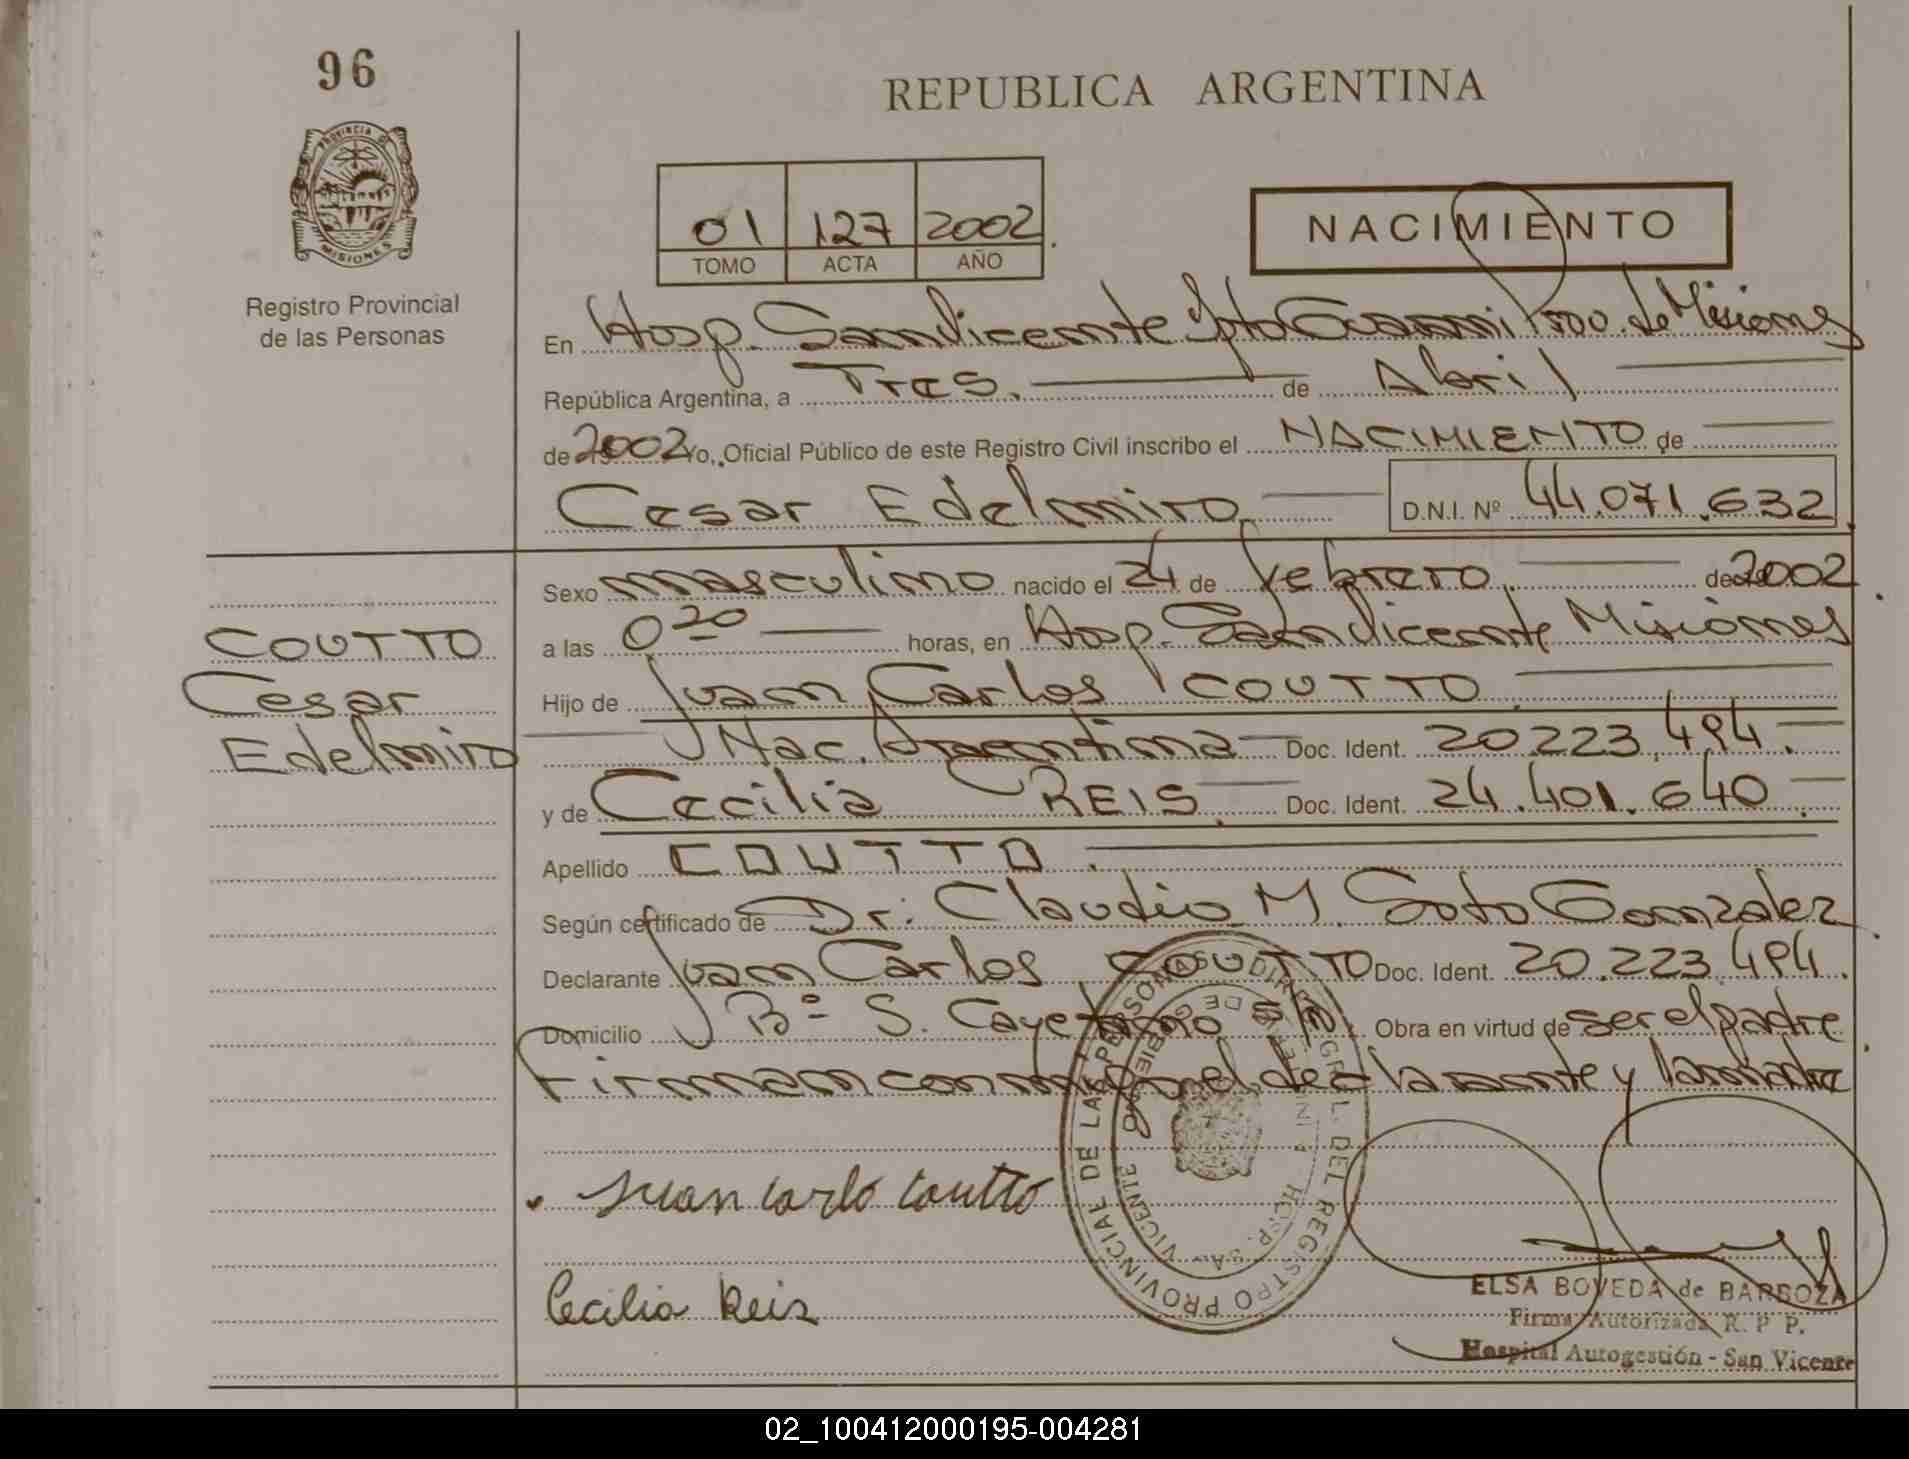 96
REPUBLICA ARGENTINA
PROVINCIA D MISIONES
Registro Provincial
de las Personas
01 127 2002
TOMO ACTA AÑO
NACIMIENTO
En Hosp. San Vicente Dpto Guarani Prov. de Misiones
República Argentina, a Tres. de Abril
de 2002 Yo, Oficial Público de este Registro Civil inscribo el NACIMIENTO de
Cesar Edelmiro D.N.I. Nº 44.071.632
Sexo masculino nacido el 24 de febrero de 2002
a las 0 20 horas, en Hosp. San Vicente Misiones
COUTTO
Cesar
Edelmiro
Hijo de Juan Carlos COUTTO
Nac. Argentina Doc. Ident. 20.223.494.
y de Cecilia REIS. Doc. Ident. 24.401.640
Apellido COUTTO.
Según certificado de Dr. Claudio M. Soto Gonzalez
Declarante Juan Carlos COUTTO Doc. Ident. 20.223.494.
Domicilio Bº S. Cayetano S/N. Obra en virtud de ser el padre
Firman conmigo el declarante y la madre
REGISTRO PROVINCIAL DE LAS PERSONAS
HOSP. SA VICENTE
Juan Carlo Coutto
Cecilia Reis
ELSA BOVEDA de BARBOZA
Firma Autorizada R. P. P.
Hospital Autogestión - San Vicente
02_100412000195-004281